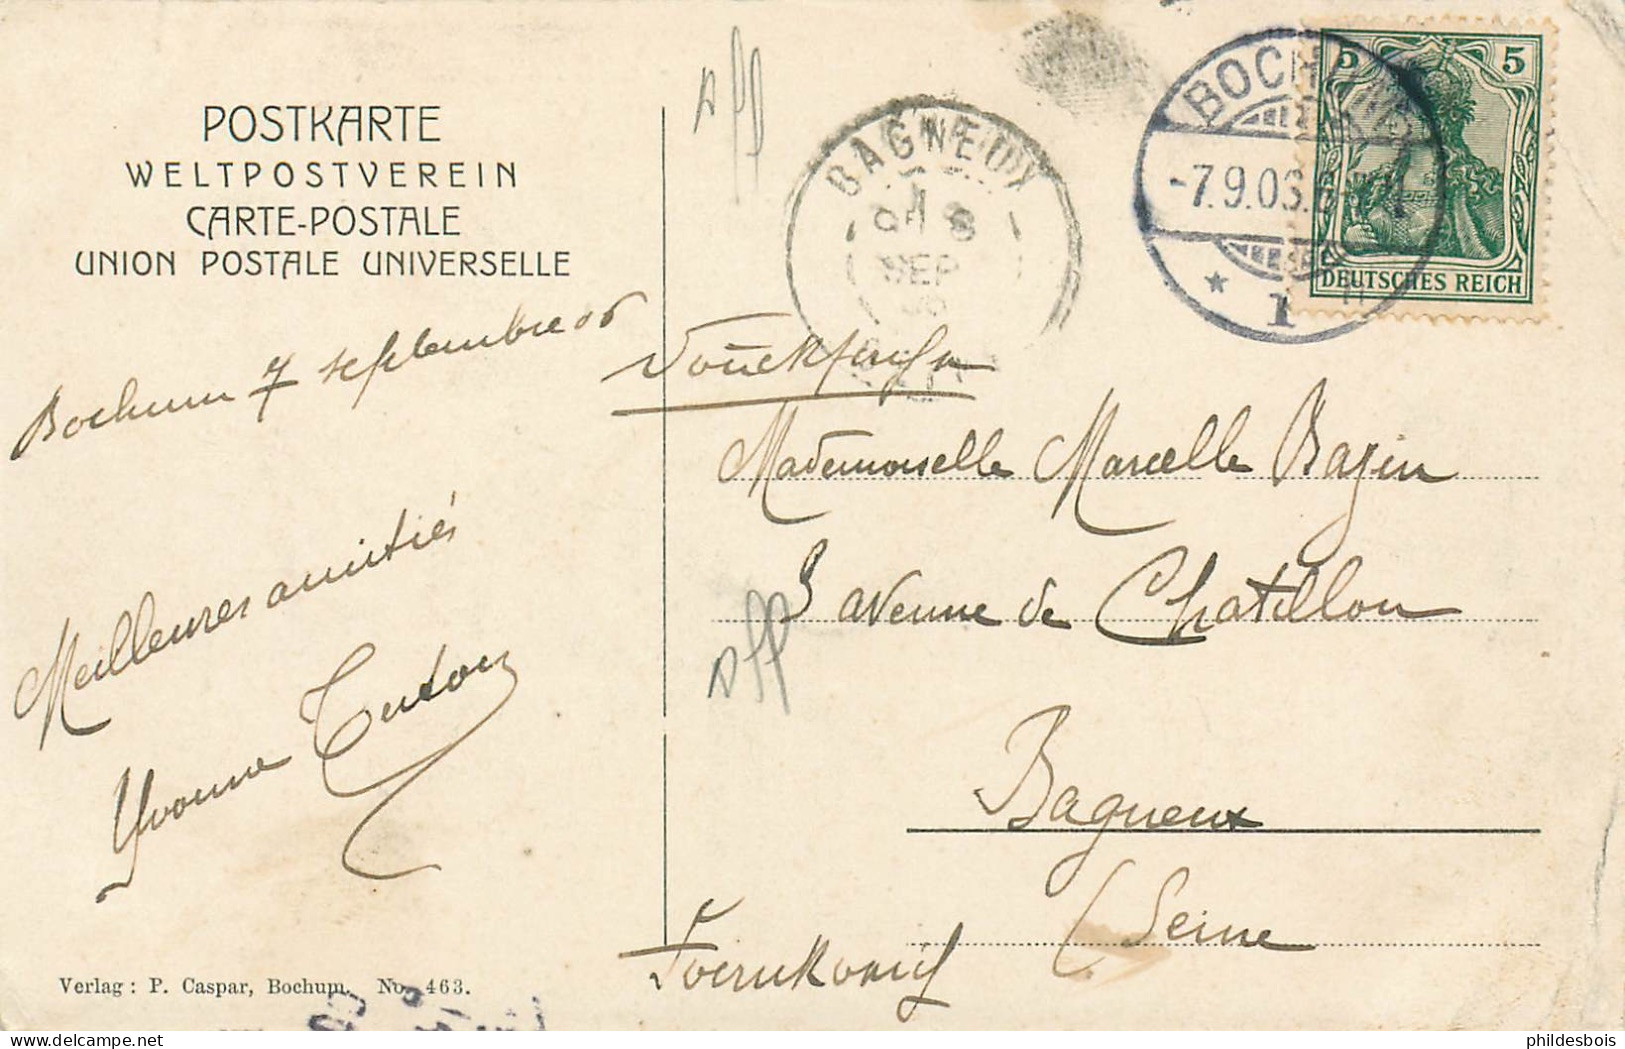 POSTKARTE
WELTPOSTVEREIN
CARTE-POSTALE
UNION POSTALE UNIVERSELLE
Bochum 7 septembre 06
Meilleures amitiés
Yvonne
Verlag : P. Caspar, Bochum. No. 463.
BAGNEUX
8
SEP
BOCHUM
-7.9.06.
* 1
5 5
DEUTSCHES REICH
Mademoiselle Marcelle Bazin
3 avenue de Chatillon
Bagneux
(Seine
philedesbois